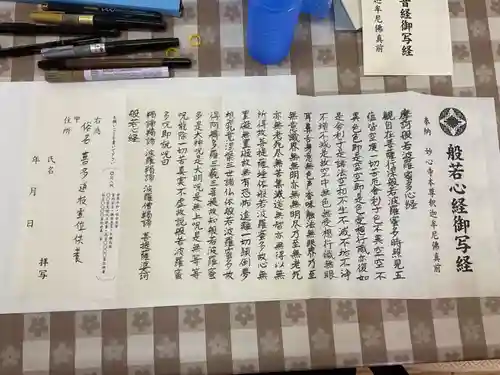 經御写経
迦牟尼佛真前
奉納 妙心寺本尊釈迦牟尼佛真前
般若心経御写経
摩訶般若波羅蜜多心経
観自在菩薩行深般若波羅蜜多時照見五
蘊皆空度一切苦厄舎利子色不異空空不
異色色即是空空即是色受想行識亦復如
是舎利子是諸法空相不生不滅不垢不浄
不増不減是故空中無色無受想行識無眼
耳鼻舌身意無色声香味触法無眼界乃至
無意識界無無明亦無無明尽乃至無老死
亦無老死尽無苦集滅道無智亦無得以無
所得故菩提薩埵依般若波羅蜜多故心無
罣礙無罣礙故無有恐怖遠離一切顛倒夢
想究竟涅槃三世諸仏依般若波羅蜜多故
得阿耨多羅三藐三菩提故知般若波羅蜜
多是大神呪是大明呪是無上呪是無等等
呪能除一切苦真実不虚故説般若波羅蜜
多呪即説呪曰
羯諦羯諦 波羅羯諦 波羅僧羯諦 菩提薩婆訶
般若心経
右為
住所
氏名
年 月 日 拝写